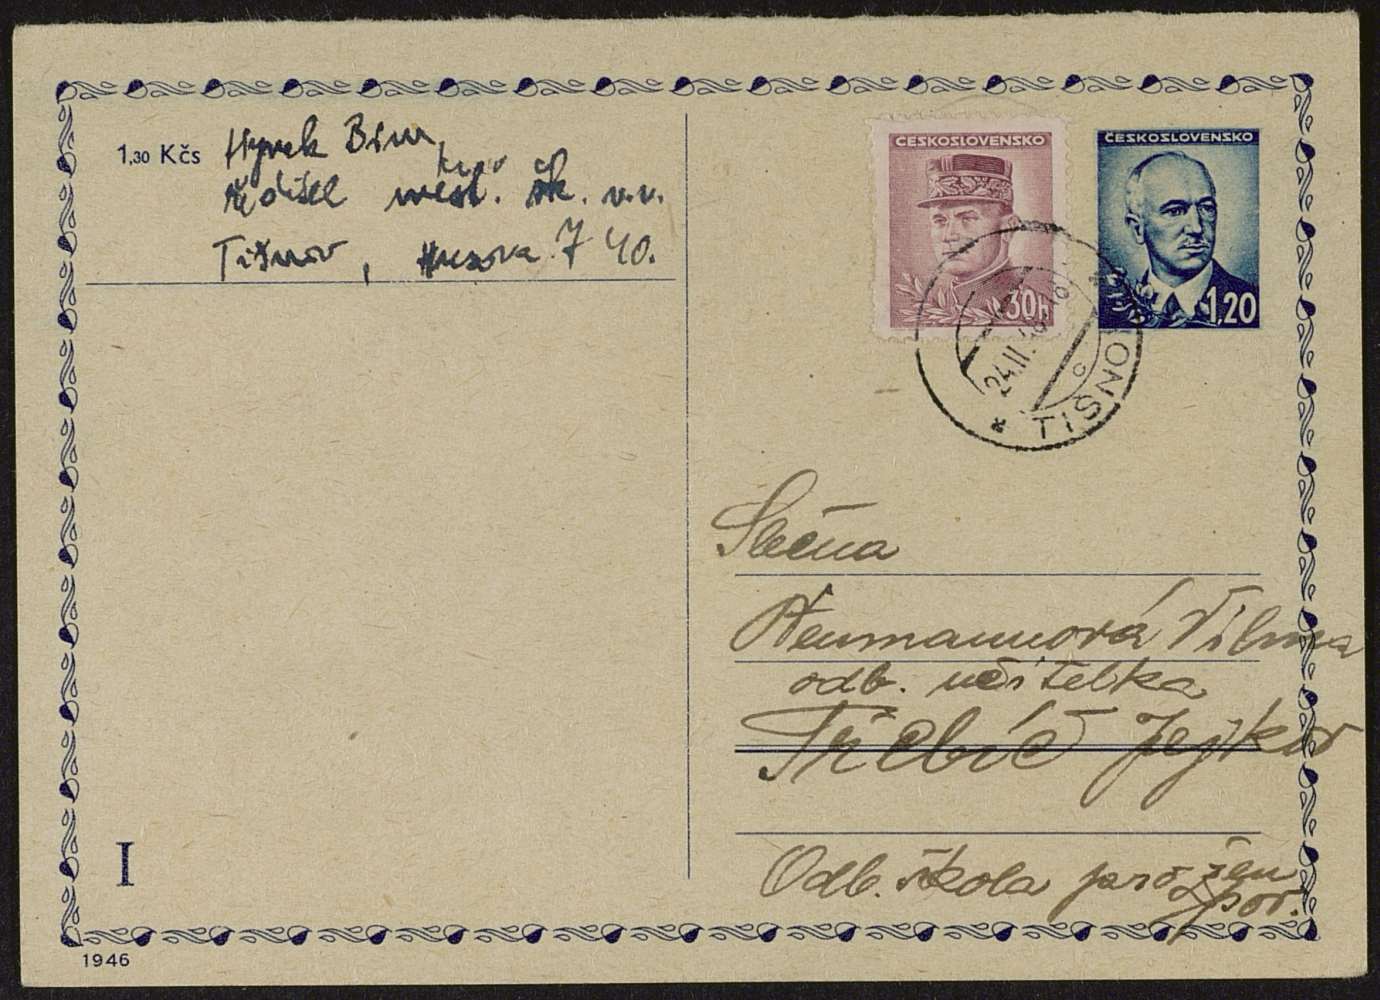 1,30 Kčs
Hynek Bím
ředitel měšť. šk. v.v.
Tišnov, Husova 740.
ČESKOSLOVENSKO
30H
ČESKOSLOVENSKO
1,20
TIŠNOV
24.II.
C
Slečna
Neumannová Vilma
odb. učitelka
Třebíč Jejkov
Odb. škola pro žen
pov.
I
1946